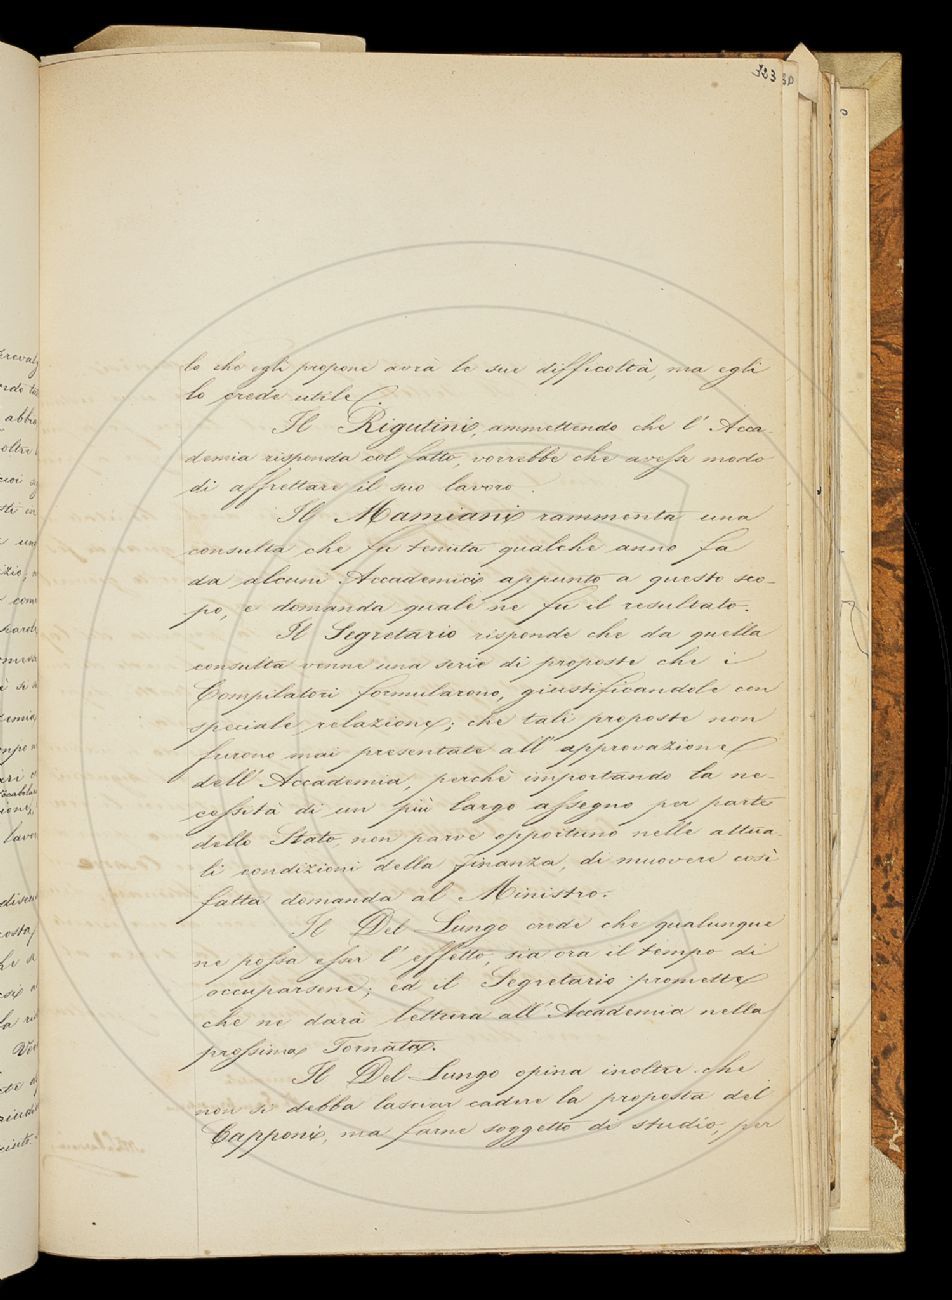 323 30
lo che egli propone avrà le sue difficoltà, ma egli
lo crede utile.
Il Rigutini, ammettendo che l'Acca-
demia risponda col fatto, vorrebbe che avesse modo
di affrettare il suo lavoro.
Il Mamiani rammenta una
consulta che fu tenuta qualche anno fa
da alcuni Accademici appunto a questo sco-
po, e domanda quale ne fu il resultato.
Il Segretario risponde che da quella
consulta venne una serie di proposte che i
Compilatori formularono, giustificandole con
speciale relazione; che tali proposte non
furono mai presentate all'approvazione
dell'Accademia, perchè importando la ne-
cessità di un più largo assegno per parte
dello Stato, non parve opportuno nelle attua-
li condizioni della finanza, di muovere così
fatta domanda al Ministro.
Il Del Lungo crede che qualunque
ne possa esser l'effetto, sia ora il tempo di
occuparsene; ed il Segretario promette
che ne darà lettura all'Accademia nella
prossima Tornata.
Il Del Lungo opina inoltre che
non si debba lasciar cadere la proposta del
Capponi, ma farne soggetto di studio, per